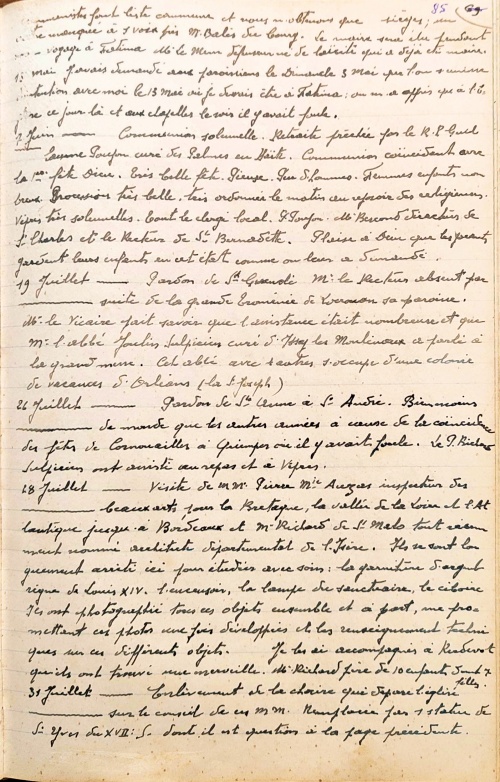 85
font liste commune et nous n'obtenons que sièges; un
manque à 1 voix près Mr Balès du bourg. Le maire sera élu pendant
voyage à Fatima Mr le Meur défenseur de laïcité qui a déjà été maire.
13 mai J'avais demandé aux paroissiens le Dimanche 3 mai que l'on s'unisse
avec moi le 13 Mai où je devais être à Fatima: on m'a appris qu'à
ce jour-là et aux chapelles le soir il y avait foule.
Juin Communion solennelle. Retraite prêchée par le R.P.
curé des Palmes en Haïti. Communion coïncident avec
la fête Dieu. Très belle fête. Pieuse. Peu d'hommes. Femmes enfants nom
breux. Procession très belle, très ordonnée le matin au reposoir des religieuses.
Vêpres très solennelles. Tout le clergé local. P. Mr directeur de
St Charles et le Recteur de Ste Bernadette. Plaise à Dieu que les parents
gardent leurs enfants en cet état comme on leur a demandé.
19 Juillet Pardon de St Guénolé Mr le Recteur absent par
suite de la grande Troménie de Locronan sa paroisse.
Mr le Vicaire fait savoir que l'assistance était nombreuse et que
Mr l'abbé Sulpicien curé d'Issy les Moulineaux a parlé à
la grand'messe. Cet abbé avec 2 autres s'occupe d'une colonie
de vacances d'Orléans (la St Joseph)
26 Juillet Pardon de Ste Anne à St André. Bien moins
de monde que les autres années à cause de la coïncidence
des fêtes de Cornouailles à Quimper où il y avait foule. Le P. Richard
Sulpicien ont assisté au repas et à Vêpres.
28 Juillet Visite de MM. Pierre Mie Auzas inspecteur des
beaux arts pour la Bretagne, la vallée de la Loire et l'At
lantique jusqu'à Bordeaux et Mr Richard de St Malo tout récem
ment nommé architecte départemental de l'Isère. Ils se sont lon
guement arrêtés ici pour étudier avec soin: la garniture d'argent
Louis XIV. l'encensoir, la lampe du sanctuaire, le ciboire
Ils ont photographié tous ces objets ensemble et à part, me pro
mettant ces photos une fois développées et les renseignements techni
ques sur ces différents objets. Je les ai accompagnés à Kerdévot
qu'ils ont trouvé une merveille. Mr Richard père de 10 enfants dont 7
filles
31 Juillet Enlèvement de la chaire qui dépare l'église
sur le conseil de ces MM. Remplacée par 1 statue de
St Yves du XVII S. dont il est question à la page précédente.